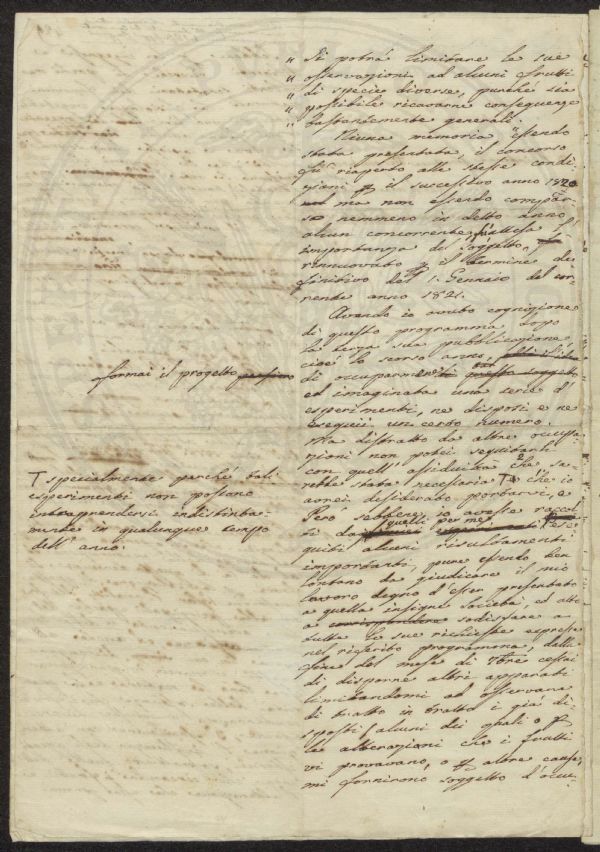 " Si potrà limitare le sue
" osservazioni ad alcuni frutti
" di specie diverse, purchè sia
" possibile ricavarne conseguenze
" bastantemente generali.
Niuna memoria essendo
stata presentata, il concorso
fù riaperto alle stesse condi-
zioni il successivo anno 1820
ma non essendo compar-
so nemmeno in detto anno
alcun concorrente, attesa l'
importanza del soggetto, fù
rinnuovato il termine de-
finitivo del 1. Gennaio del cor-
rente anno 1821.
Avendo io avuto cognizione
di questo programma dopo
la terza sua pubblicazione,
cioè lo scorso anno,
formai il progetto
di occuparmene
ed imaginata una serie d'
esperimenti, ne disposi e ne
eseguii un certo numero.
Ma distratto da altre occupa-
zioni non potei seguitarli
con quell'assiduità che sa-
rebbe stata necessaria e che io
avrei desiderato portarvi,
T specialmente perchè tali
esperimenti non possono
intraprendersi indistinta-
mente in qualunque tempo
dell'anno.
Però sebbene io avessi
da quelli per me ese-
guiti alcuni risultamenti
importanti, pure essendo ben
lontano da giudicare il mio
lavoro degno d'esser presentato
a quella insigne società, ed atto
a sodisfare a
tutte le sue richieste espresse
nel riferito programma, dalla
fine del mese di 7bre cessai
di disporre altri apparati
limitandomi ad osservare
di tratto in tratto i già di-
sposti (alcuni dei quali o
le alterazioni che i frutti
vi provavano, o altre cause,
mi fornirono soggetto d'occu-